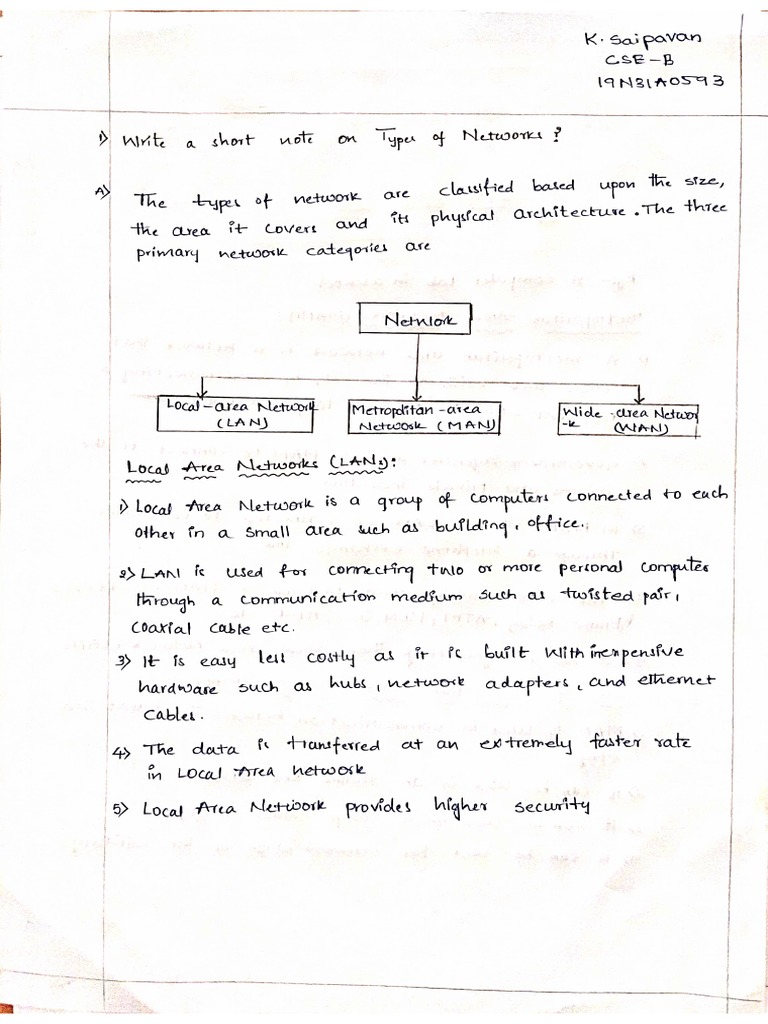 K. Saipavan
CSE-B
19N31A0593
1) Write a short note on Types of Networks?
A) The types of network are classified based upon the size,
the area it covers and its physical architecture. The three
primary network categories are
Network
Local-area Network
(LAN)
Metropolitan-area
Network (MAN)
Wide-area Networ
-k (WAN)
Local Area Networks (LANs):
1) Local Area Network is a group of computers connected to each
other in a small area such as building, office.
2) LAN is used for connecting two or more personal computer
through a communication medium such as twisted pair,
coaxial cable etc.
3) It is easy less costly as it is built with inexpensive
hardware such as hubs, network adapters, and ethernet
cables.
4) The data is transferred at an extremely faster rate
in Local Area network
5) Local Area Network provides higher security